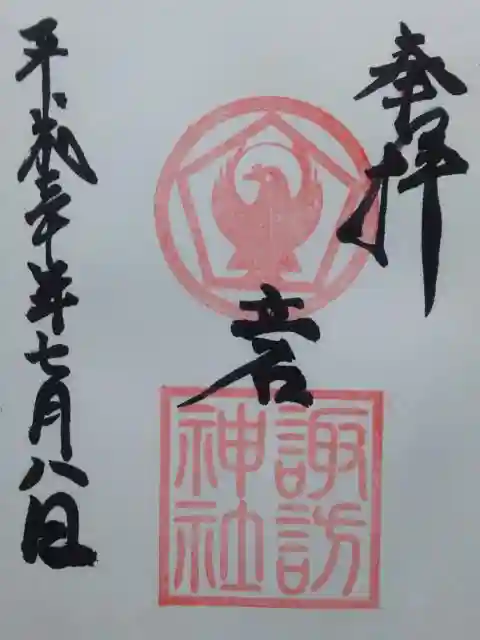 奉拝
諏訪
神社
平成三十年七月八日